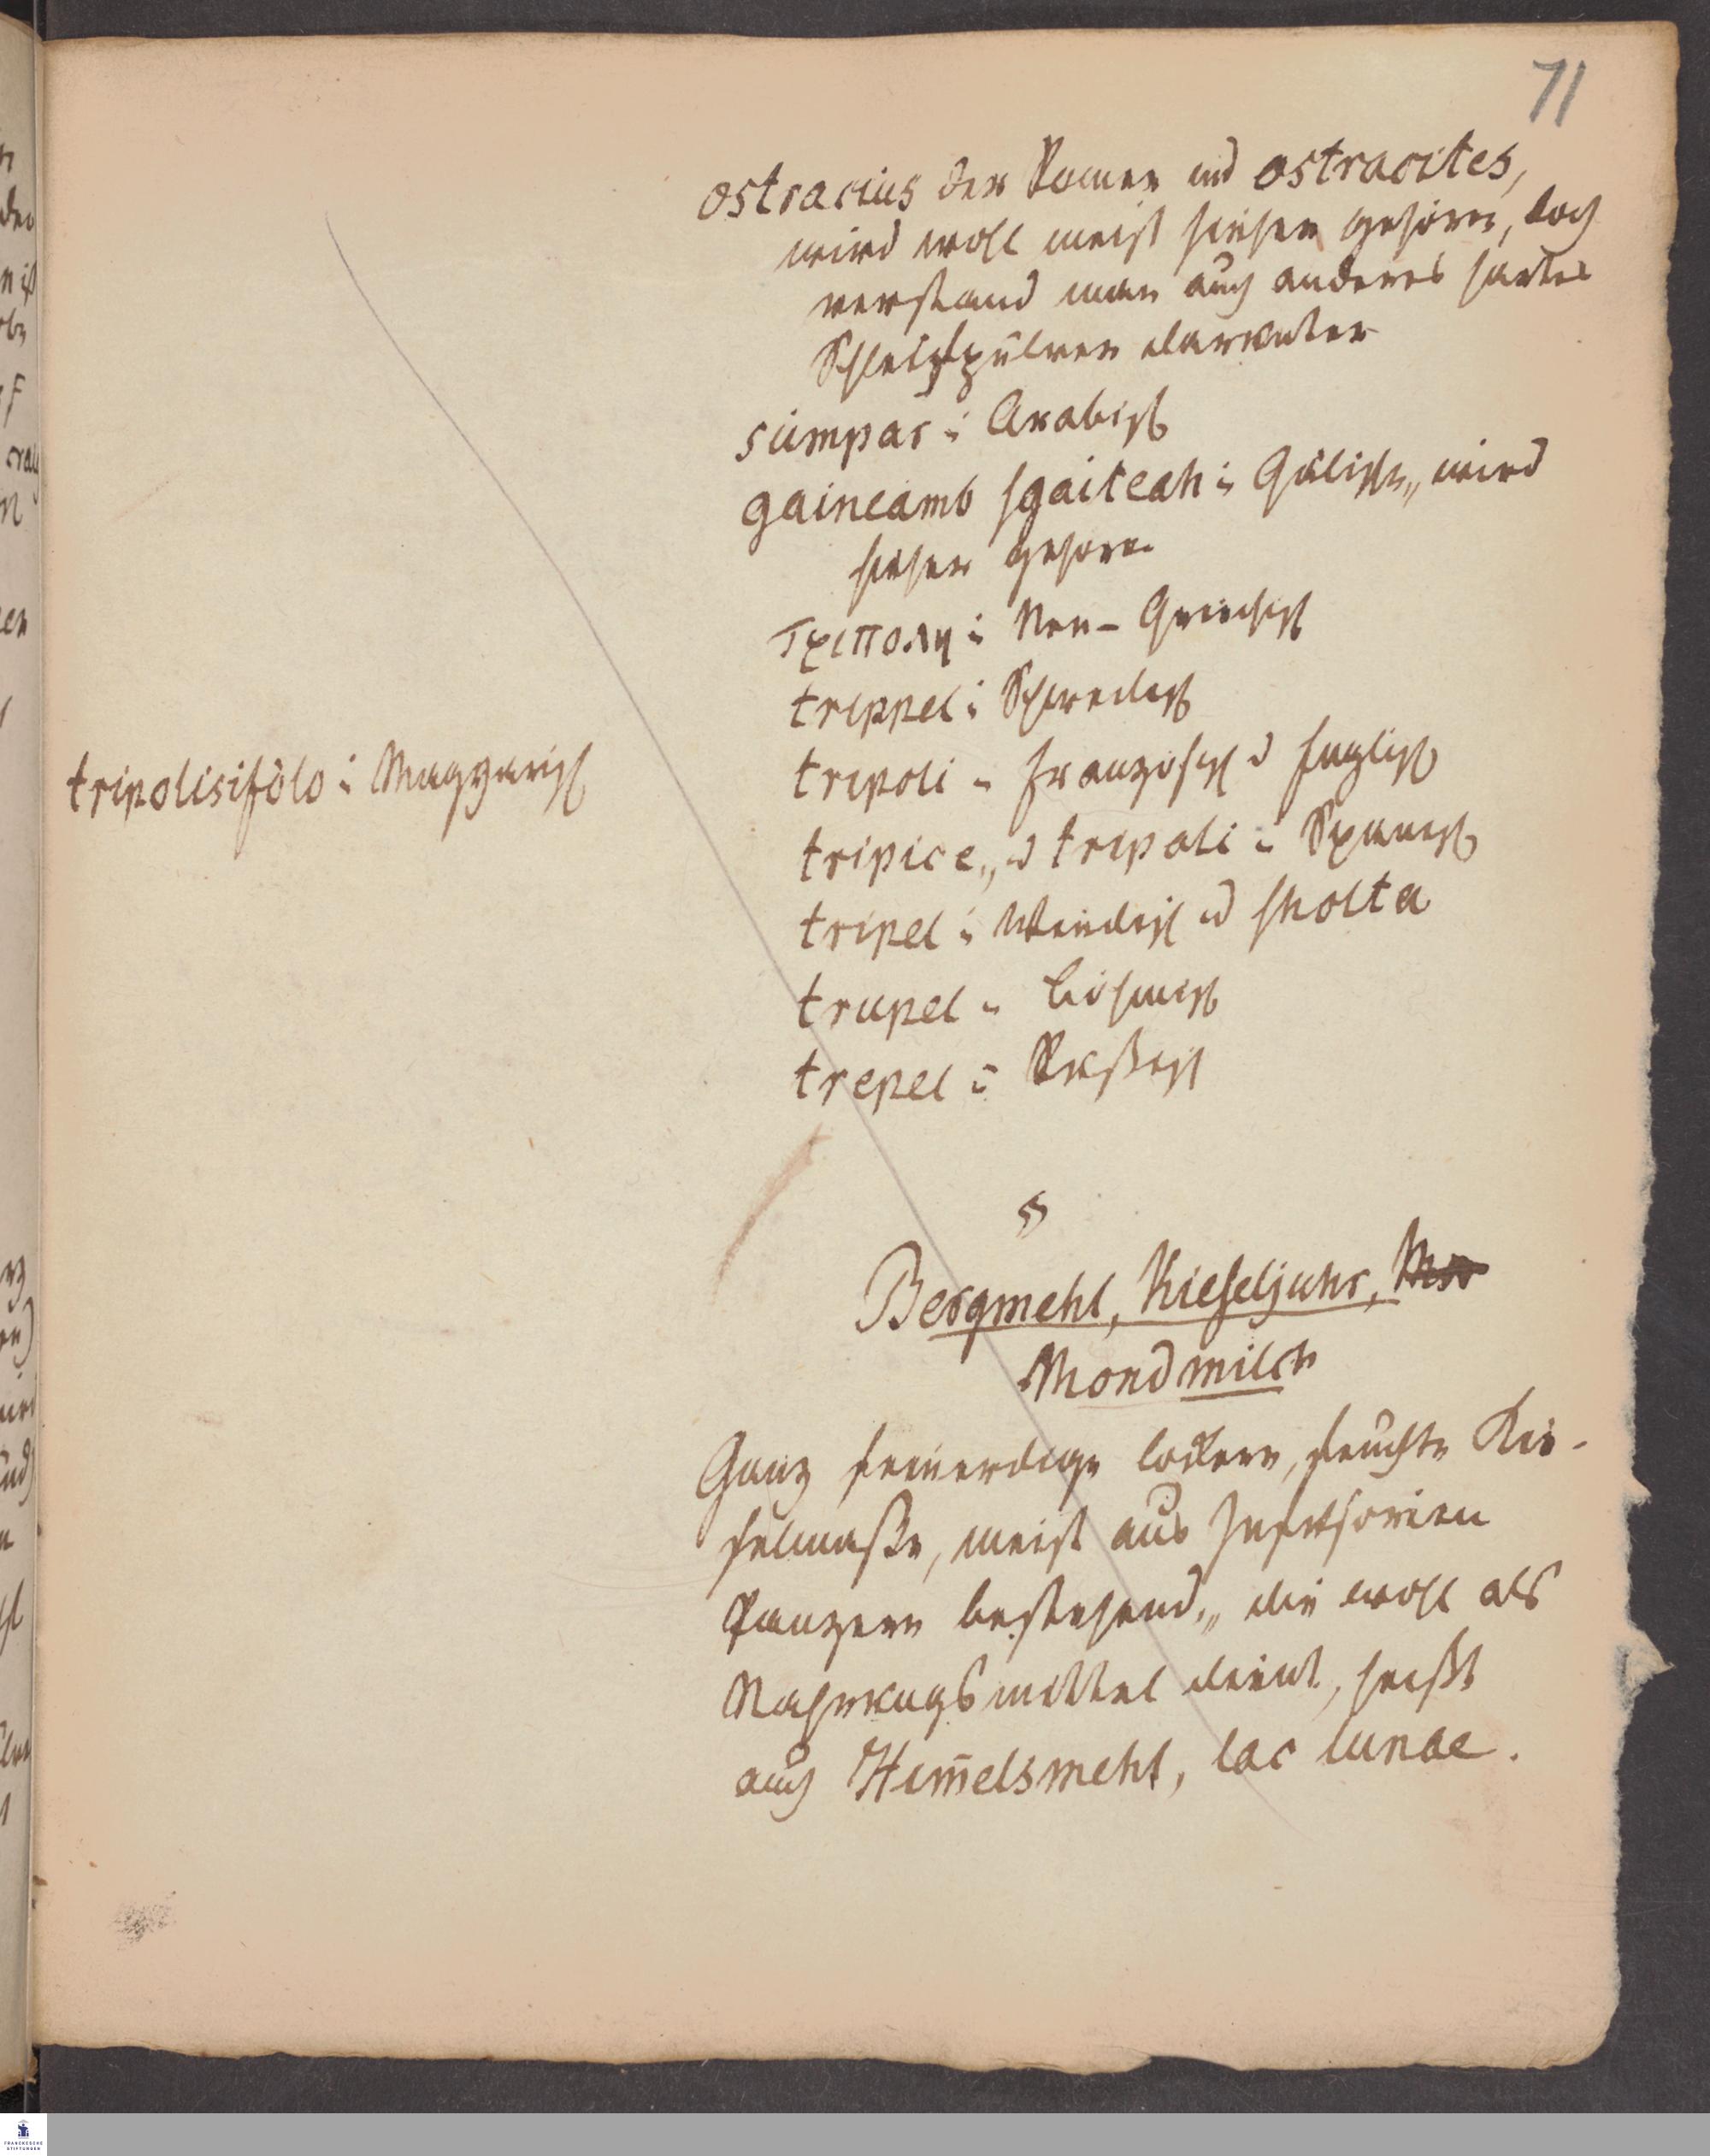 71
ostracius der Römer und ostracites,
wird wohl meist hieher gehören, doch
verstand man auch anderes hartes
Schleifpulver darunter
sumpar i Arabisch
gaineamh sgaiteah i Gälischn, wird
hieher gehören
Τριπολη i Neu-Griechisch
trippel i Schwedisch
tripolisiföld i Magyarisch
tripoli i Französisch u Englisch
tripice, u tripoli i Spanisch
tripel i Wendisch u sholta
trupel i Böhmisch
trepel i Rußisch
Bergmehl, Kieseljuhr,
Mondmilch
Ganz feinerdige lockere, feuchte Kie-
selmaße, meist aus Infusorien
Panzern bestehend, die wohl als
Nahrungsmittel dient, heißt
auch Him̄elsmehl, lac lunae.
FRANCKESCHE
STIFTUNGEN